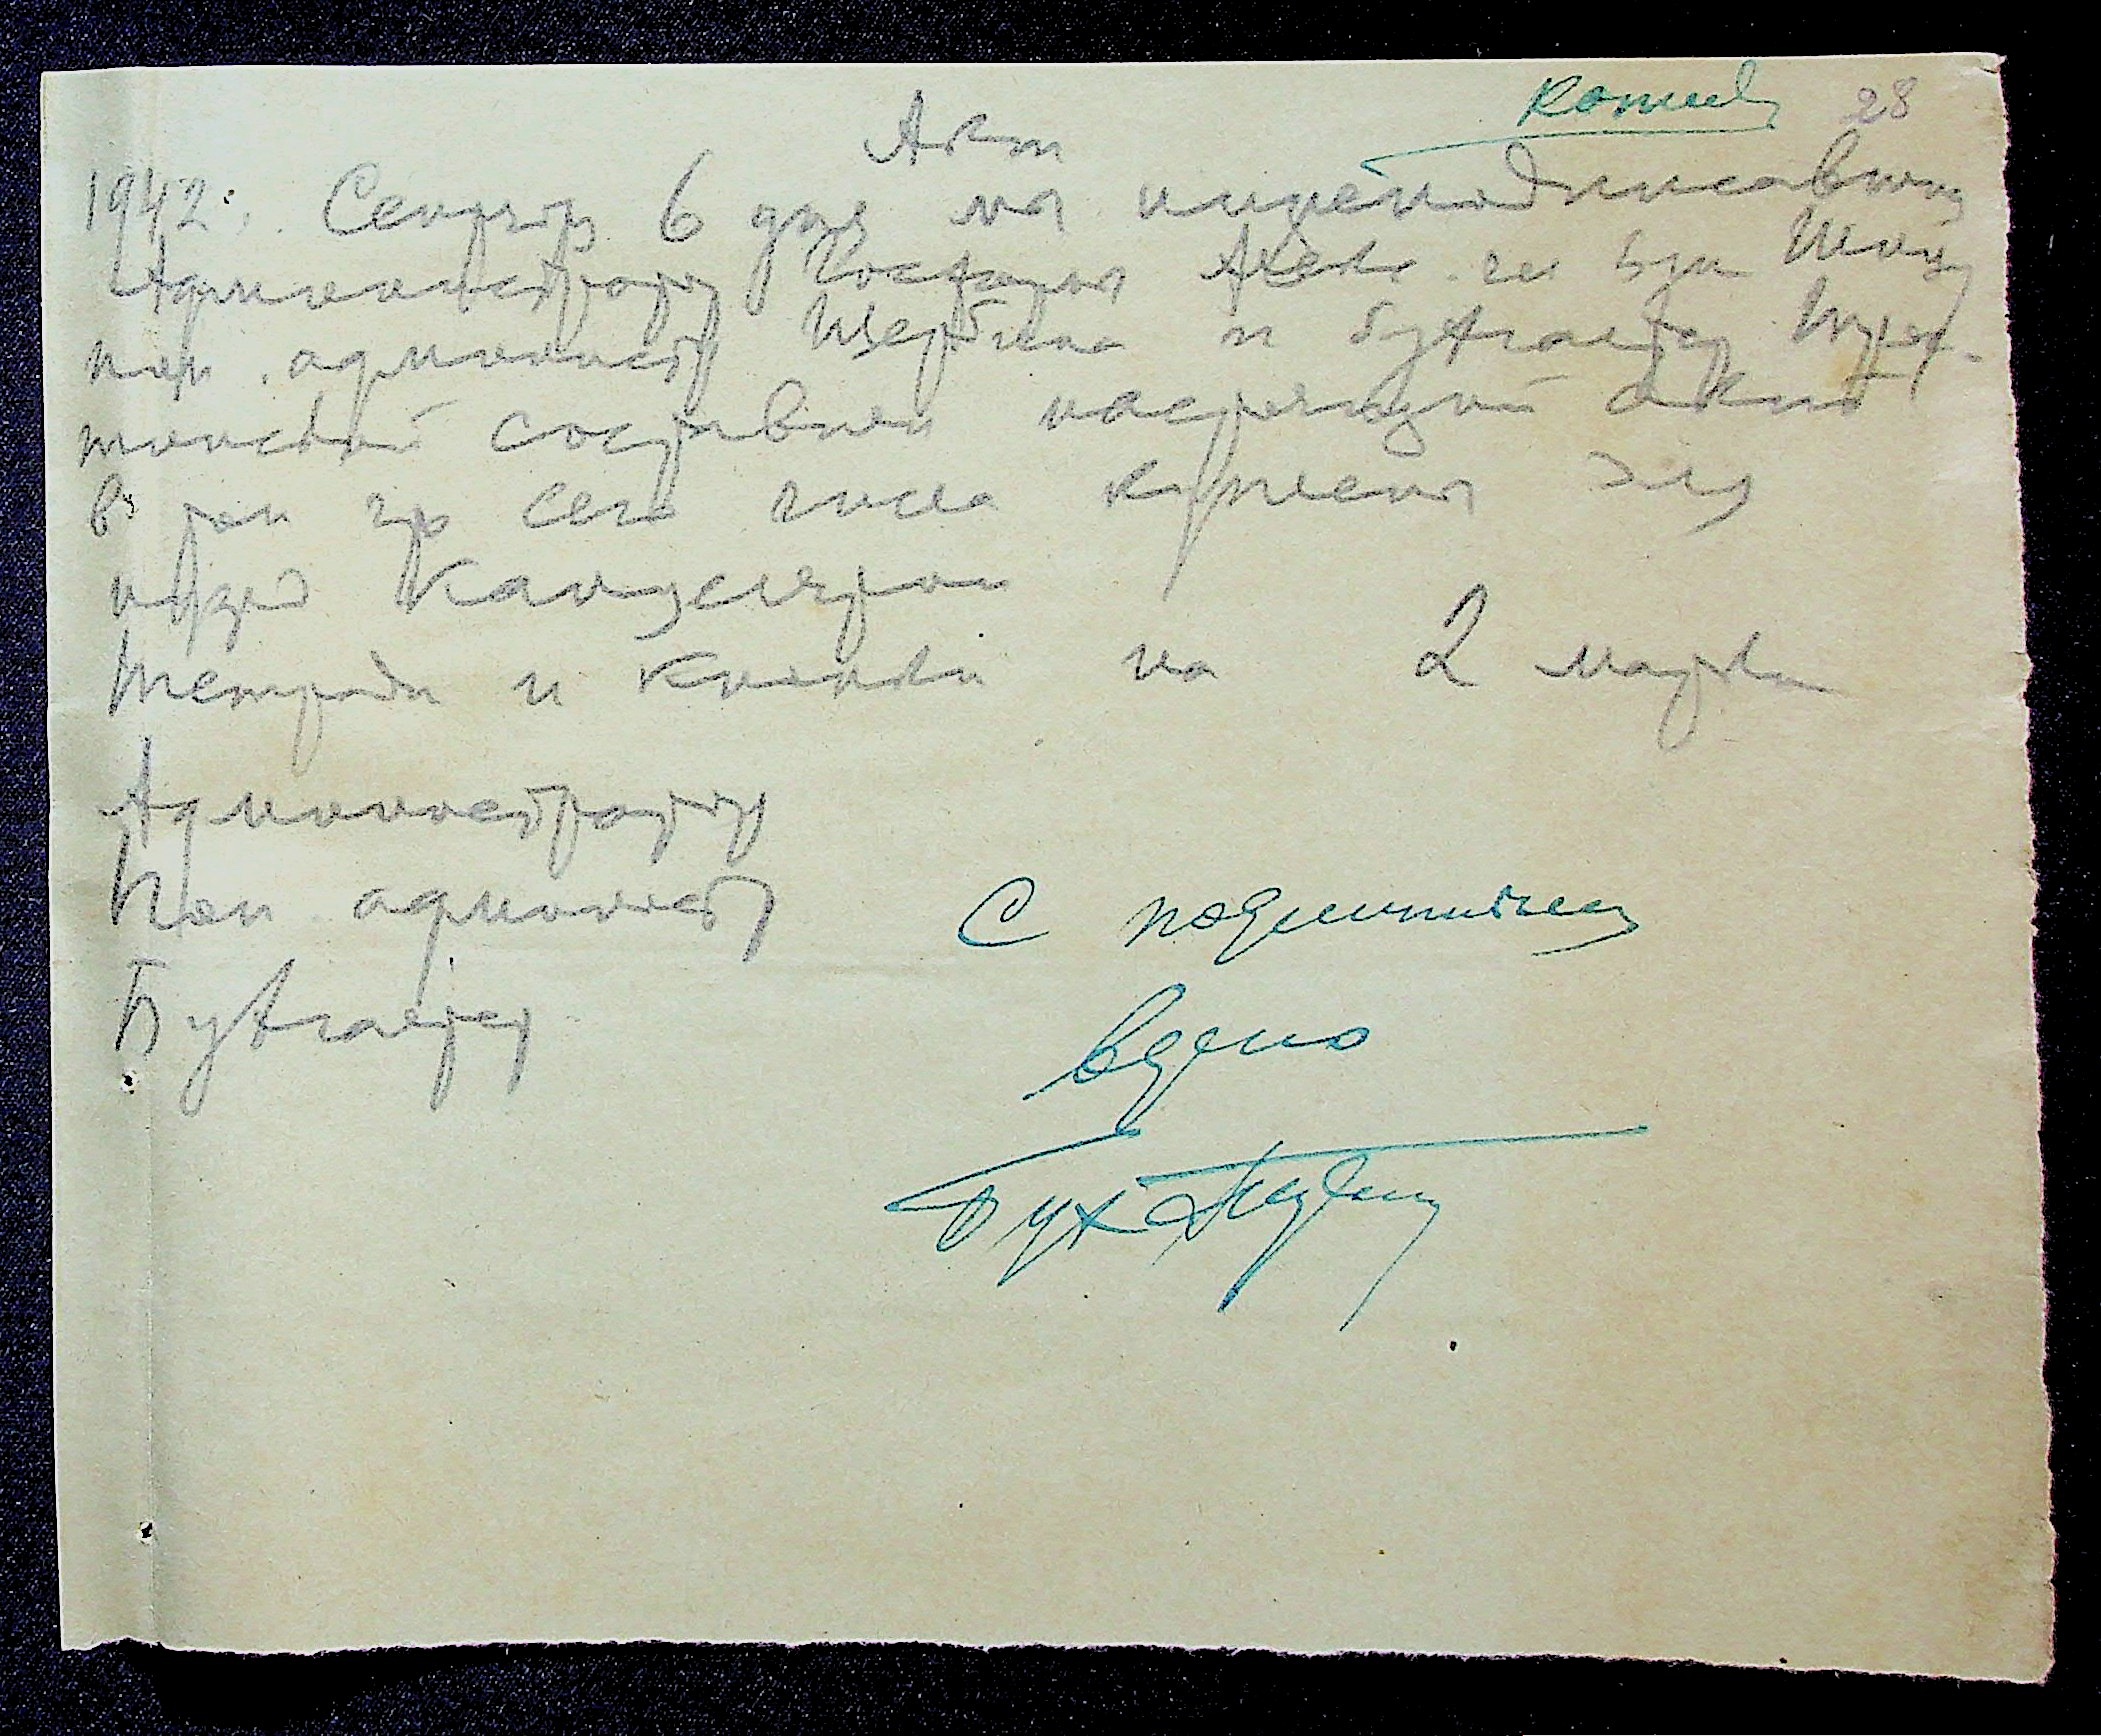 копия 28
Акт
1942 г. Сентябр 6 дня мы нижеподписавшиеся
Администратор
пом. администр Щербина и бухгалтер
составили настоящий акт
в том что сего числа куплены для
нужд Канцелярии
Тетради и книжки на 2 марки
Администратор
Пом. администр
Бухгалтер
С подлинным
верно
Бух